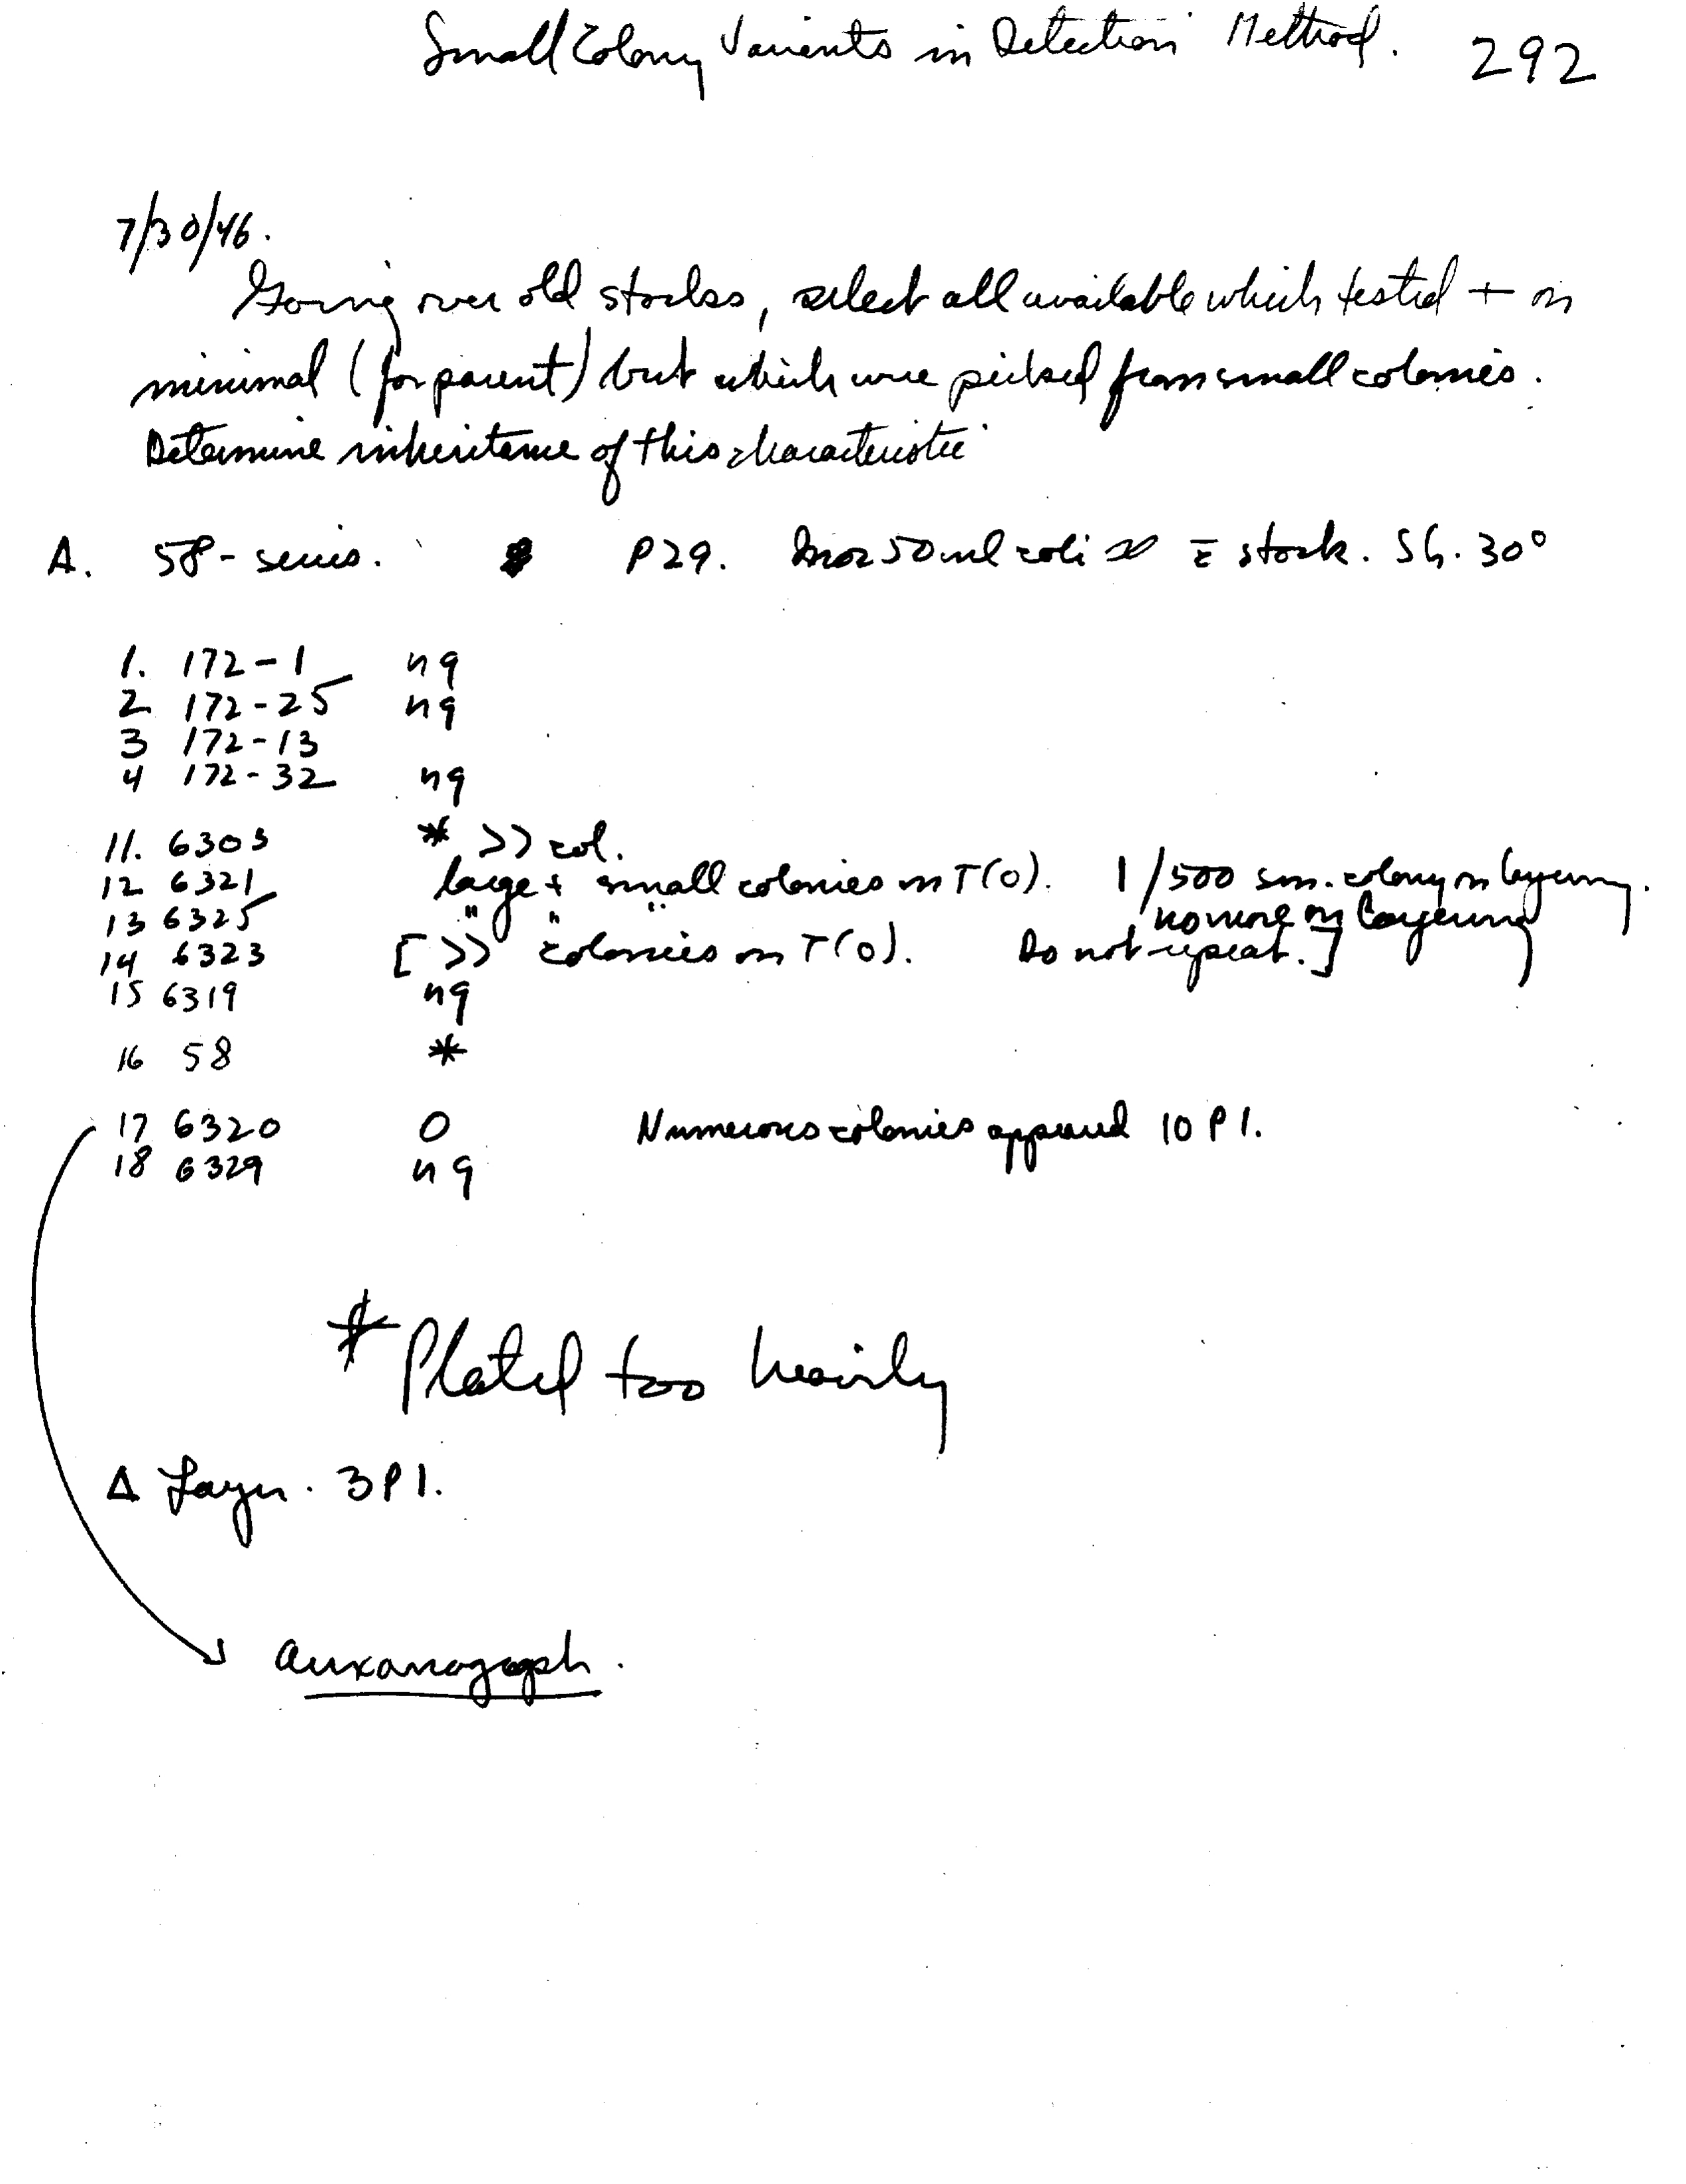 Small Colony Variants in Detection Method. 292
7/30/46.
Going over old stocks, select all available which tested + on
minimal (for parent) but which were picked from small colonies.
Determine inheritance of this characteristic
A. 58-series. P29. 50 ml coli c̄ stock. Sh. 30°
1. 172-1 ng
2 172-25 ng
3 172-13
4 172-32 ng
11. 6303 * >> col.
12 6321 large + small colonies on T(0). 1/500 sm. colony on layering.
13 6325 " " " no more on layering
14 6323 [ >> colonies on T(0). Do not repeat. ]
15 6319 ng
16 58 *
17 6320 0 Numerous colonies appeared 10 Pl.
18 6329 ng
* Plated too heavily
Δ Layer. 3 Pl.
auxanogaph.